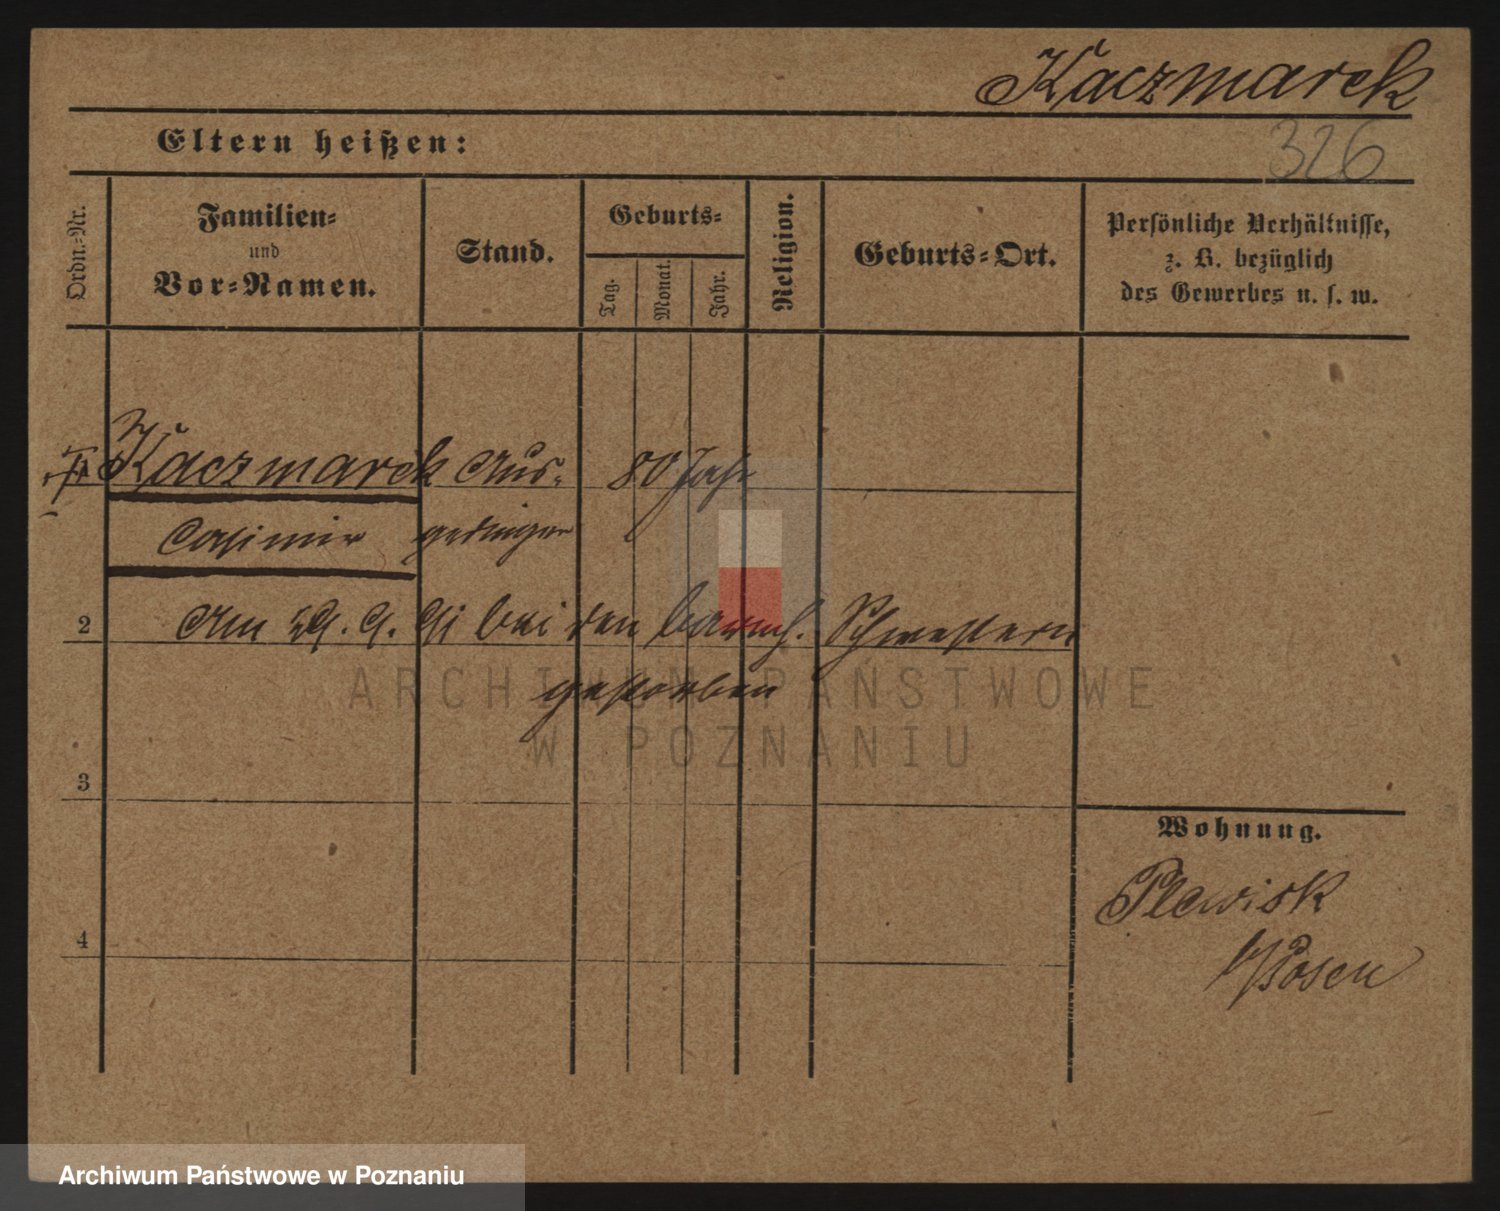 Kaczmarek
326
Eltern heißen:
Ordn.-Nr.
Familien-
und
Vor-Namen.
Stand.
Geburts-
Tag.
Monat.
Jahr.
Religion.
Geburts-Ort.
Persönliche Verhältnisse,
z. B. bezüglich
des Gewerbes u. s. w.
Kaczmarek Aus- 80 Jahr
Casimir gedinger
2 Am 29. 9. 91 bei den barmh. Schwestern
gestorben
3
4
Wohnung.
Plewisk
b/Posen
ARCHIWUM PAŃSTWOWE
W POZNANIU
Archiwum Państwowe w Poznaniu